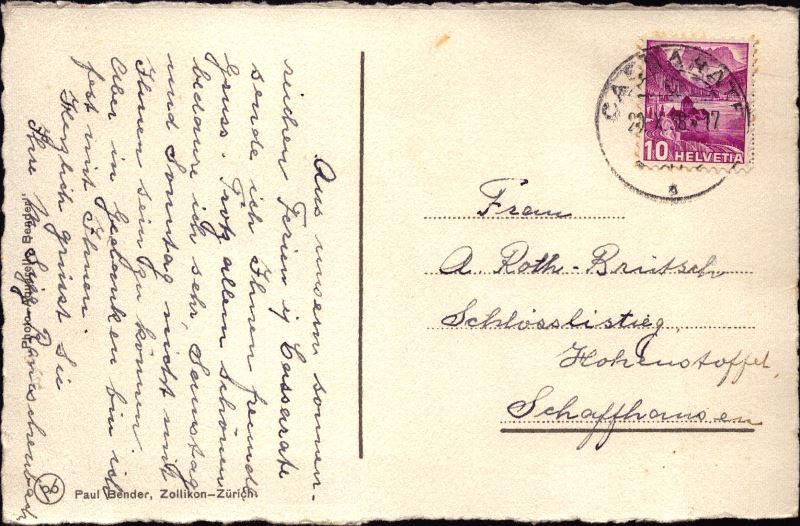 Aus unsern sonnen-
reichen Ferien in Cassarate
sende ich Ihnen freundl.
Gruss. Trotz allem Schönen
bedaure ich sehr, Samstag
und Sonntag nicht mit
Ihnen sein zu können.
Aber in Gedanken bin ich
fest mit Ihnen.
Herzlich grüsst Sie
Ihre
Photo-Künstler Bender
Paul Bender, Zollikon-Zürich
10 HELVETIA
Frau
A Roth-Brütsch
Schlösslistieg,
Hohenstoffel
Schaffhausen